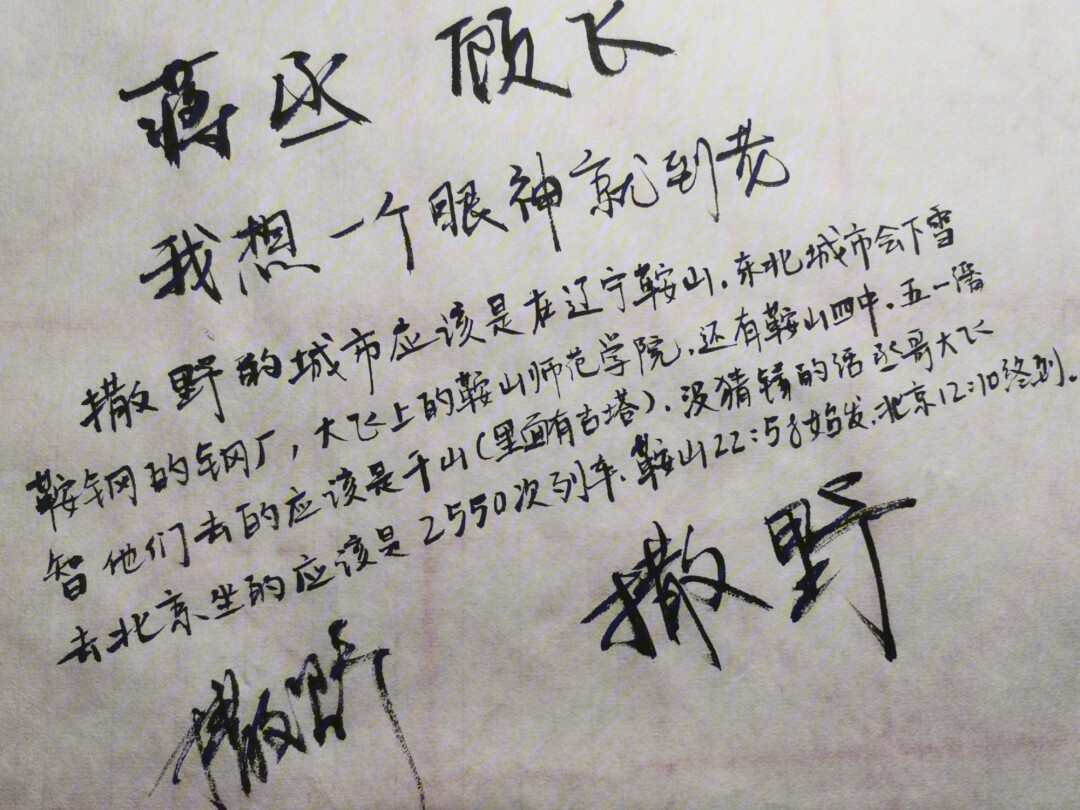 蒋丞 顾飞
我想一个眼神就到老
撒野的城市应该是在辽宁鞍山，东北城市会下雪
鞍钢的钢厂，大飞上的鞍山师范学院，还有鞍山四中，五一潘
智他们去的应该是千山(里面有古塔)，没猜错的话丞哥大飞
去北京坐的应该是2550次列车，鞍山22:58始发，北京12:10终到。
撒野
撒野